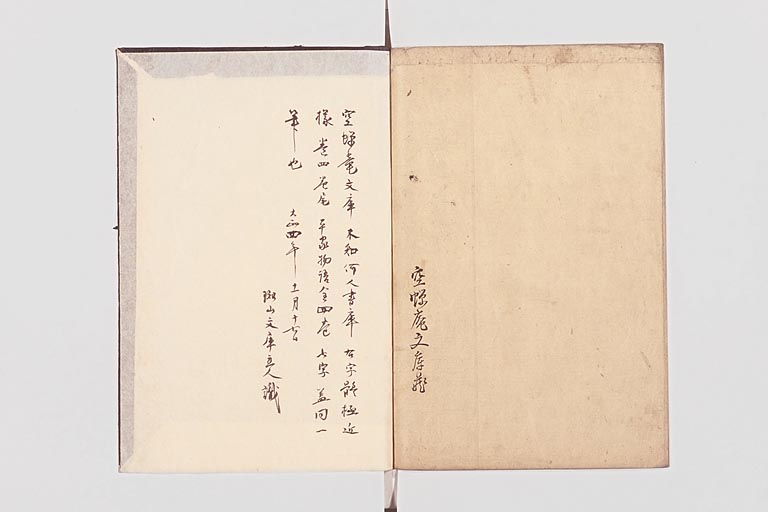 空蟬庵文庫蔵
空蟬庵文庫 未知何人書庫 右字體極近
様 巻四巻尾 平家物語全四巻 七字 蓋同一
筆也
大正四年十一月十六日
斑山文庫主人識